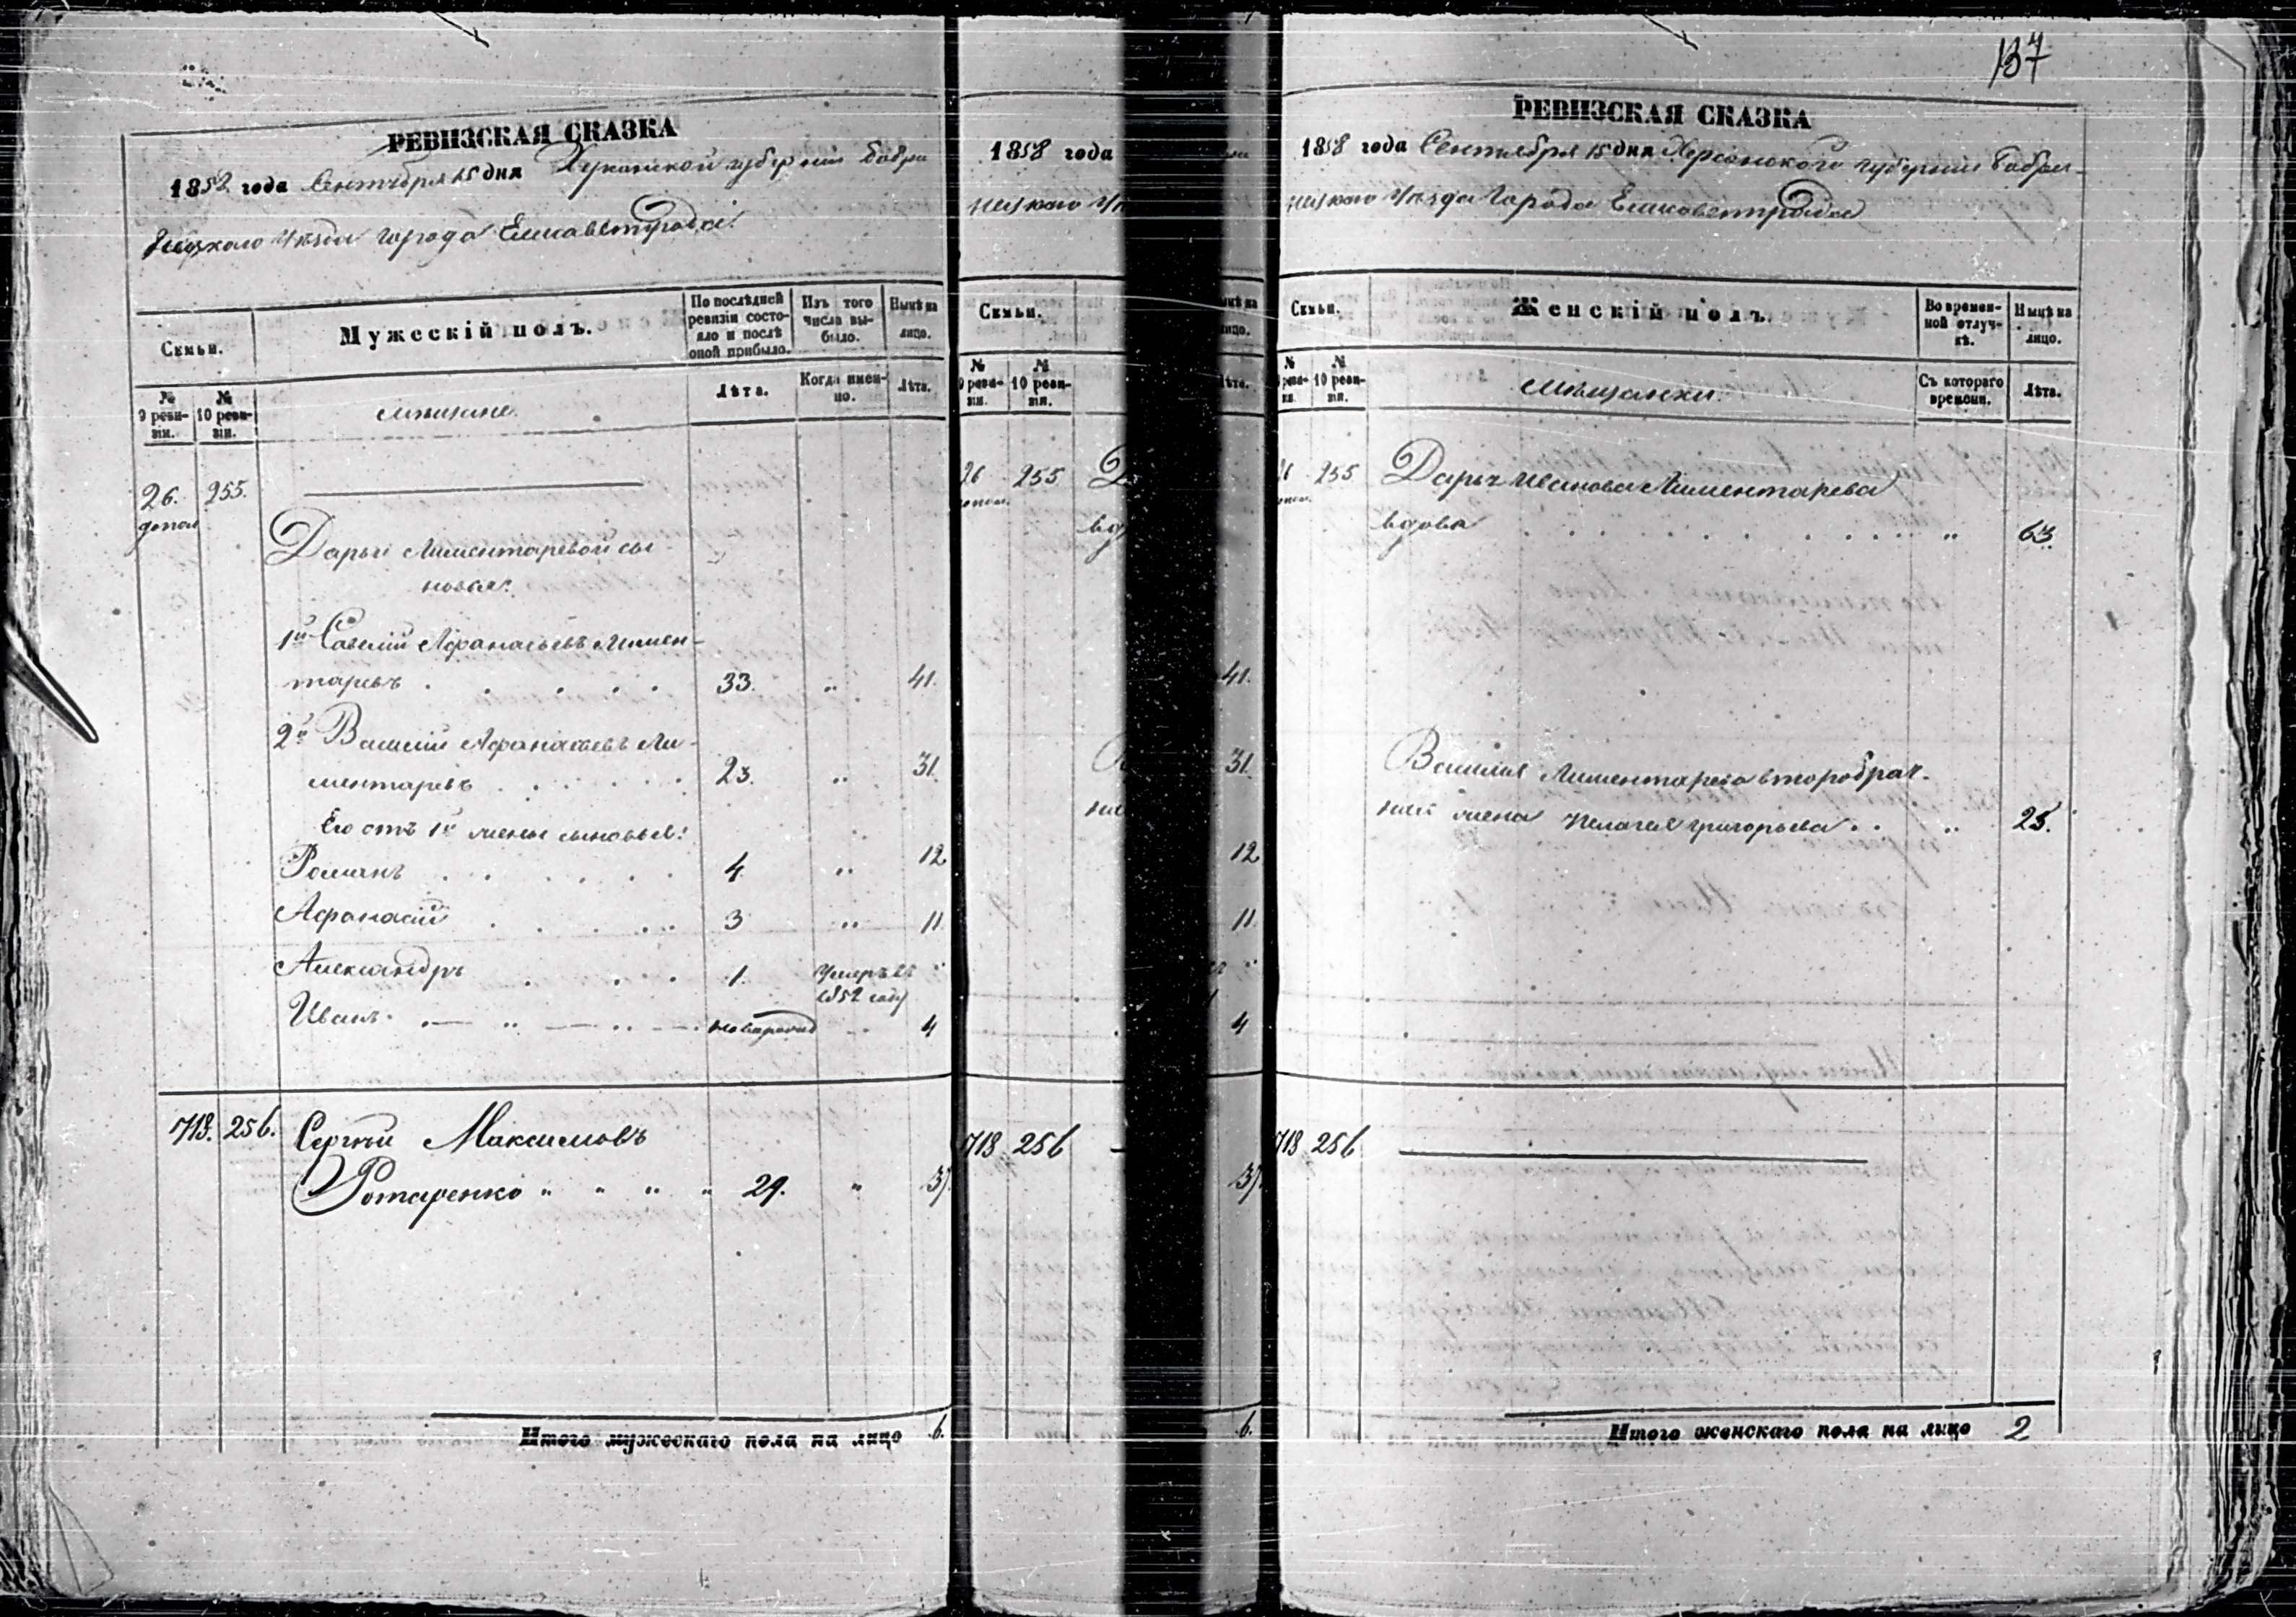 РЕВИЗСКАЯ СКАЗКА
1858 года Сентября 15 дня Херсонской губерніи Бобри
нецкаго Уѣзда города Елисаветграда.
Семьи.
Мужескій полъ.
По послѣдней ревизіи состояло и послѣ оной прибыло.
Изъ того числа выбыло.
Нынѣ на лицо.
№ 9 ревизіи.
№ 10 ревизіи.
мѣщане.
Лѣта.
Когда именно.
Лѣта.
26. 255.
допол
Дарьи Лиментаревой сы
новья:
1й Савелій Афанасьевъ Лимен-
таревъ 33. " 41.
2й Василій Афанасьевъ Ли-
ментаревъ 23. " 31.
Его отъ 1й жены сыновья:
Романъ 4 " 12
Афанасій 3 " 11.
Александръ 1. умеръ въ "
1852 году
Иванъ новорожд 4
713. 256. Сергѣй Максимовъ
Ротаренко " " " " 29. " 37.
Итого мужескаго пола на лицо 6.
1858 года
нецкаго Уѣ
Семьи.
№ 9 ревизіи.
№ 10 ревизіи.
26 255 Д
вд
ная
713 256
ынѣ на
ицо.
ѣта.
41.
31.
12
11.
4
37.
6.
137
РЕВИЗСКАЯ СКАЗКА
1858 года Сентября 15 дня Херсонской губерніи Бобри-
нецкаго Уѣзда города Елисаветграда
Семьи.
Женскій полъ.
Во временной отлучкѣ.
Нынѣ на лицо.
№ 10 ревизіи.
мѣщанки.
Съ котораго времени.
Лѣта.
6 255 Дарья Иванова Лиментарева
вдова " 63.
Василія Лиментарева второбрач-
ная жена Пелагея Григорьева " 25.
713 256
Итого женскаго пола на лицо 2